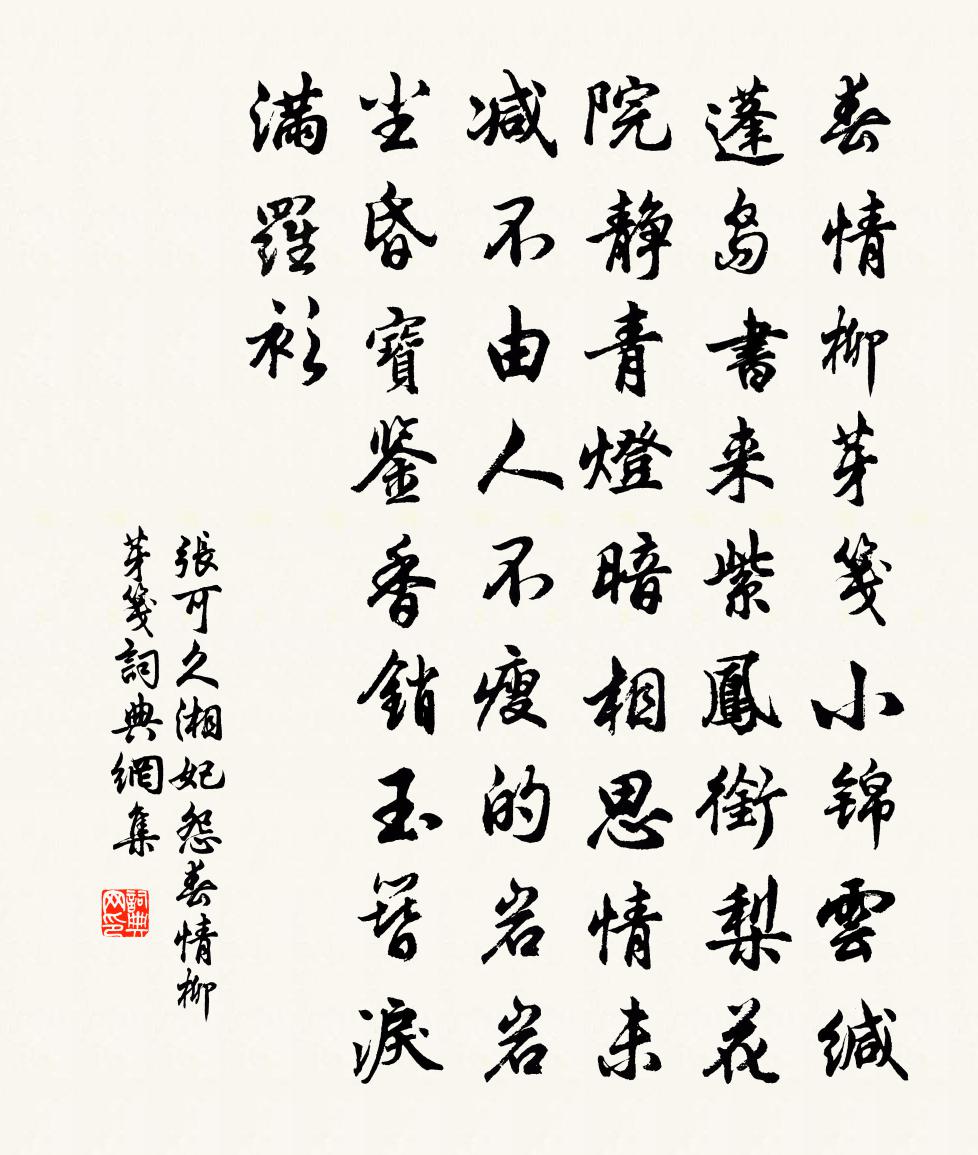 春情柳芽箋小錦雲緘
蓬島書来紫鳳銜梨花
院靜青燈暗相思情未
减不由人不瘦的岩岩
尘昏寶鑒香銷玉簪淚
滿羅衫
張可久湘妃怨春情柳
芽箋詞典網集
詞典网印